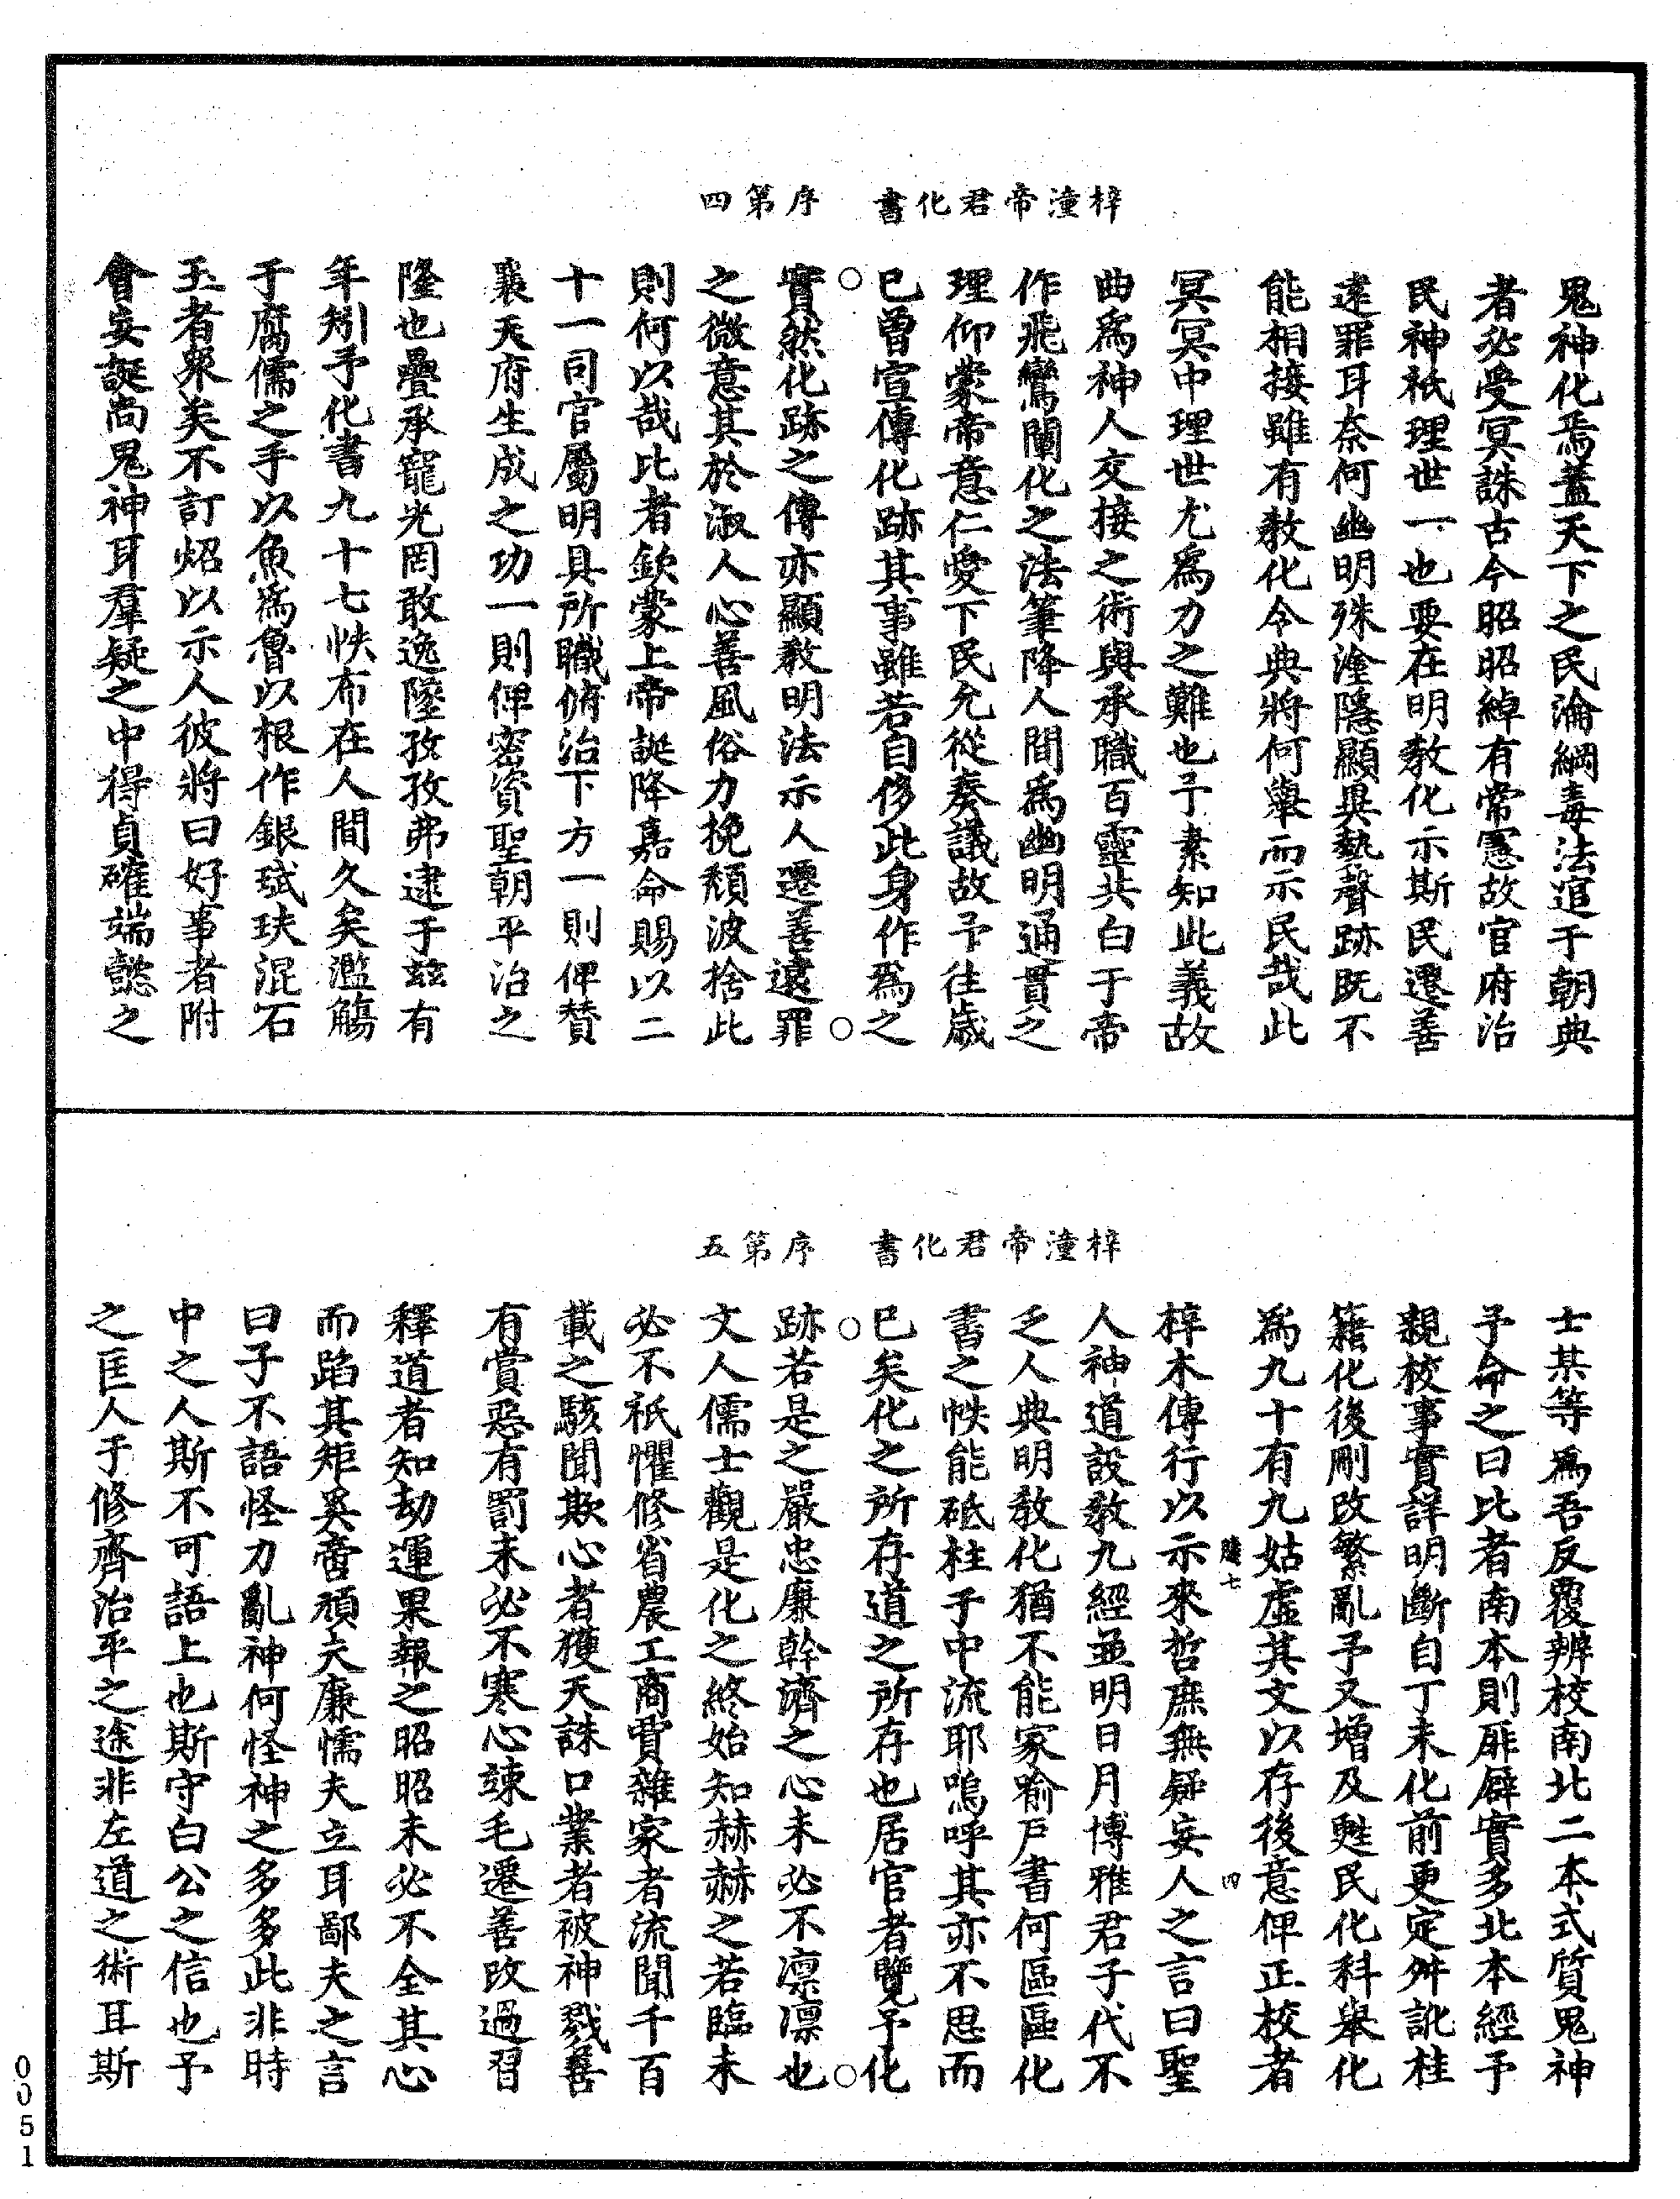 梓潼帝君化書　序第四
鬼神化焉蓋天下之民淪綱毒法逭于朝典
者必受冥誅古今昭昭綽有常憲故官府治
民神祇理世一也要在明教化示斯民遷善
遠罪耳奈何幽明殊塗隱顯異勢聲跡既不
能相接雖有教化令典將何舉而示民哉此
冥冥中理世尤爲力之難也予素知此義故
曲爲神人交接之術與承職百靈共白于帝
作飛鸞闡化之法筆降人間爲幽明通貫之
理仰蒙帝意仁愛下民允從奏議故予往歲
已曾宣傳化跡其事雖若自侈此身作爲之
實然化跡之傳亦顯教明法示人遷善遠罪
之微意其於淑人心善風俗力挽頹波捨此
則何以哉比者欽蒙上帝誕降嘉命賜以二
十一司官屬明具所職俯治下方一則俾贊
襄天府生成之功一則俾密資聖朝平治之
隆也疊承寵光罔敢逸墜孜孜弗逮于兹有
年矧予化書九十七帙布在人間久矣濫觴
于腐儒之手以魚爲魯以根作銀珷玞混石
玉者衆矣不訂炤以示人彼將曰好事者附
會妄誕尚鬼神耳羣疑之中得貞確端懿之
梓潼帝君化書　序第五
士某等爲吾反覆辨校南北二本式質鬼神
予命之曰比者南本則厞僻實多北本經予
親校事實詳明斷自丁未化前更定舛訛桂
籍化後刪改繁亂予又增及甦民化科舉化
爲九十有九姑虛其文以存後意俾正校者
䧟七　四
梓木傳行以示來哲庶無疑妄人之言曰聖
人神道設教九經並明日月博雅君子代不
乏人典明教化猶不能家喻戶書何區區化
書之帙能砥柱于中流耶嗚呼其亦不思而
已矣化之所存道之所存也居官者覽予化
跡若是之嚴忠廉幹濟之心未必不凛凛也
文人儒士觀是化之終始知赫赫之若臨未
必不祇懼修省農工商賈雜家者流聞千百
載之駭聞欺心者獲天誅口業者被神戮善
有賞惡有罰未必不寒心竦毛遷善改過習
釋道者知劫運果報之昭昭未必不全其心
而蹈其矩奚啻頑夫廉懦夫立耳鄙夫之言
曰子不語怪力亂神何怪神之多多此非時
中之人斯不可語上也斯守白公之信也予
之匡人于修齊治平之途非左道之術耳斯
0051